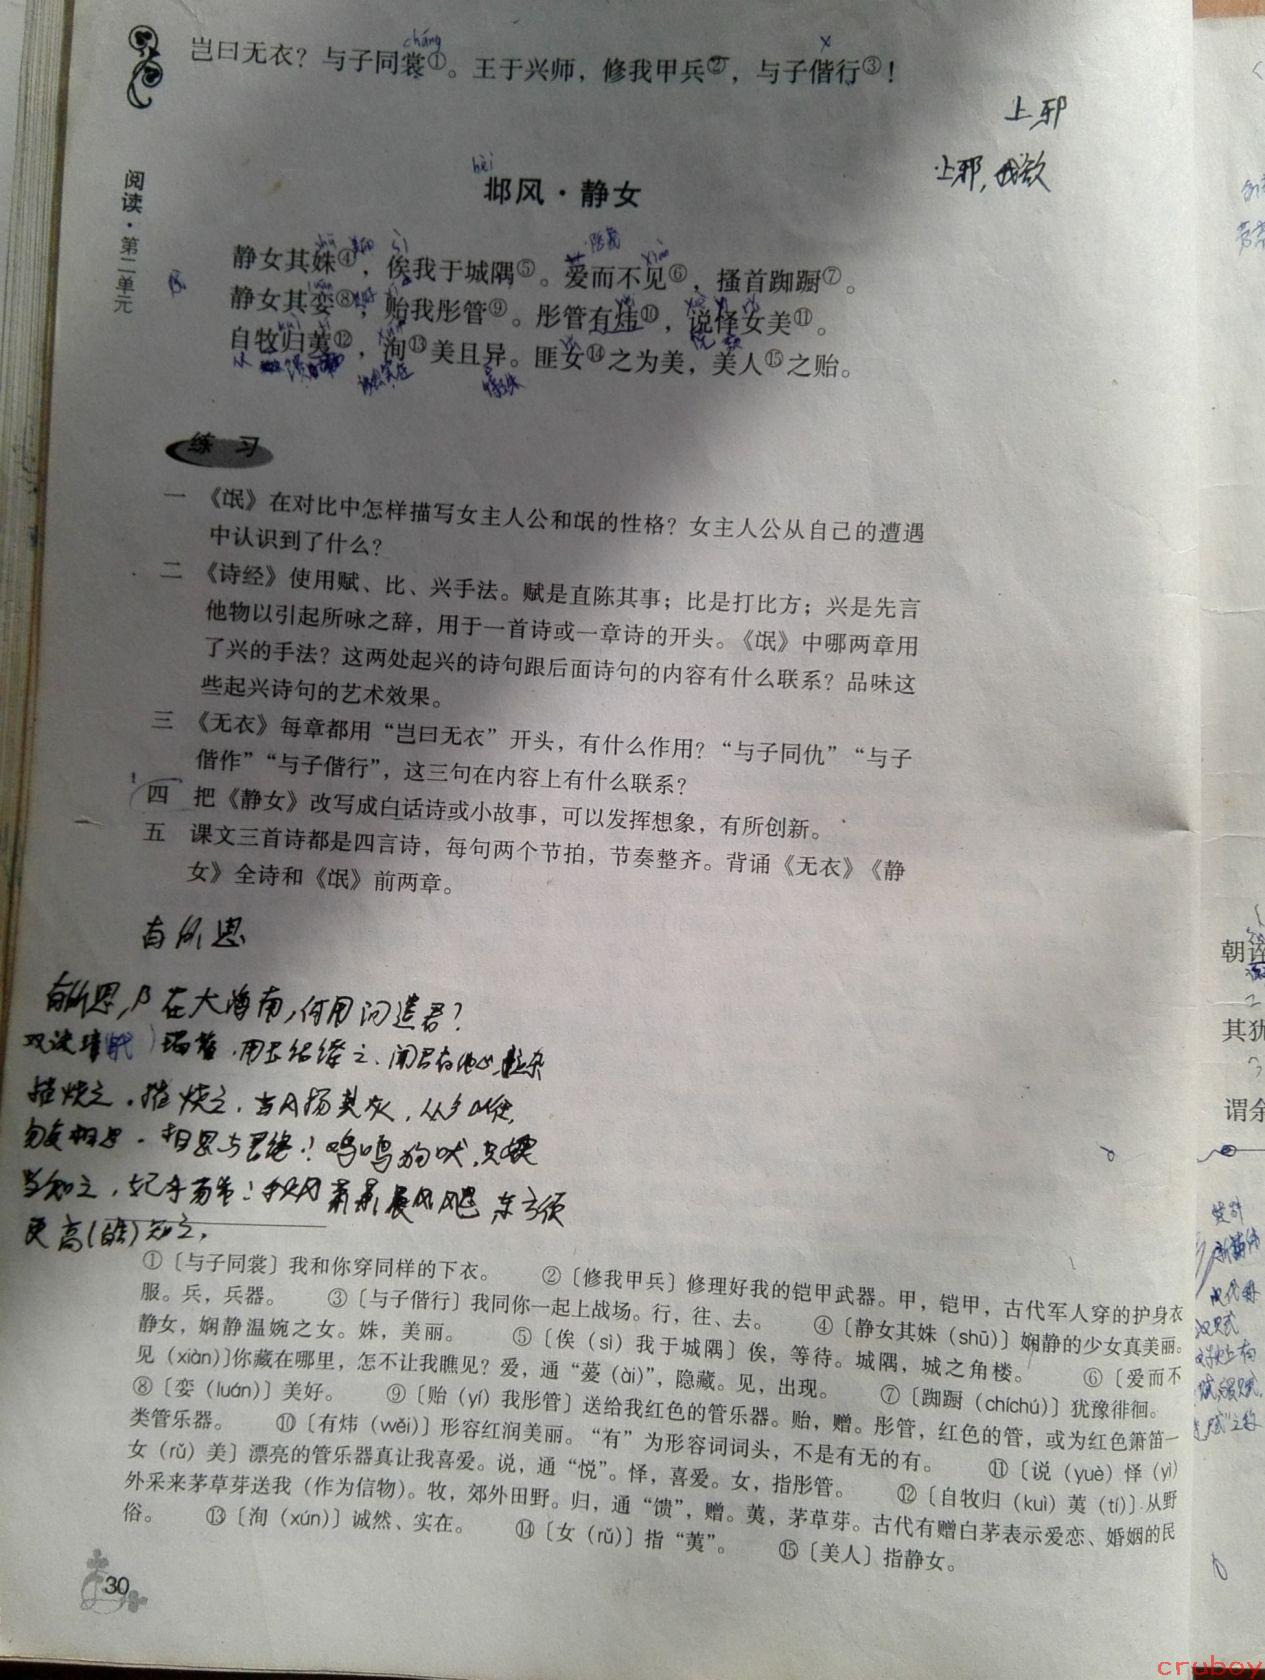 岂曰无衣？与子同裳①。王于兴师，修我甲兵②，与子偕行③！
cháng
上邪
上邪，我欲
阅读·第二单元
bèi
邶风·静女
静女其姝④，俟我于城隅⑤。爱而不见⑥，搔首踟蹰⑦。
静女其娈⑧，贻我彤管⑨。彤管有炜⑩，说怿女美⑪。
自牧归荑⑫，洵⑬美且异。匪女⑭之为美，美人⑮之贻。
练 习
一 《氓》在对比中怎样描写女主人公和氓的性格？女主人公从自己的遭遇
中认识到了什么？
二 《诗经》使用赋、比、兴手法。赋是直陈其事；比是打比方；兴是先言
他物以引起所咏之辞，用于一首诗或一章诗的开头。《氓》中哪两章用
了兴的手法？这两处起兴的诗句跟后面诗句的内容有什么联系？品味这
些起兴诗句的艺术效果。
三 《无衣》每章都用“岂曰无衣”开头，有什么作用？“与子同仇”“与子
偕作”“与子偕行”，这三句在内容上有什么联系？
四 把《静女》改写成白话诗或小故事，可以发挥想象，有所创新。
五 课文三首诗都是四言诗，每句两个节拍，节奏整齐。背诵《无衣》《静
女》全诗和《氓》前两章。
有所思
有所思，乃在大海南，何用问遗君？
双珠玳瑁簪，用玉绍缭之、闻君有他心，拉杂
摧烧之。摧烧之，当风扬其灰，从今以往，
勿复相思。相思与君绝！
秋风萧萧晨风飔 东方须
更高(皓)知之，
①〔与子同裳〕我和你穿同样的下衣。 ②〔修我甲兵〕修理好我的铠甲武器。甲，铠甲，古代军人穿的护身衣
服。兵，兵器。 ③〔与子偕行〕我同你一起上战场。行，往、去。 ④〔静女其姝（shū）〕娴静的少女真美丽。
静女，娴静温婉之女。姝，美丽。 ⑤〔俟（sì）我于城隅〕俟，等待。城隅，城之角楼。 ⑥〔爱而不
见（xiàn）〕你藏在哪里，怎不让我瞧见？爱，通“薆（ài）”，隐藏。见，出现。 ⑦〔踟蹰（chíchú）〕犹豫徘徊。
⑧〔娈（luán）〕美好。 ⑨〔贻（yí）我彤管〕送给我红色的管乐器。贻，赠。彤管，红色的管，或为红色箫笛一
类管乐器。 ⑩〔有炜（wěi）〕形容红润美丽。“有”为形容词词头，不是有无的有。 ⑪〔说（yuè）怿（yì）
女（rǔ）美〕漂亮的管乐器真让我喜爱。说，通“悦”。怿，喜爱。女，指彤管。 ⑫〔自牧归（kuì）荑（tí）〕从野
外采来茅草芽送我（作为信物）。牧，郊外田野。归，通“馈”，赠。荑，茅草芽。古代有赠白茅表示爱恋、婚姻的民
俗。 ⑬〔洵（xún）〕诚然、实在。 ⑭〔女（rǔ）〕指“荑”。 ⑮〔美人〕指静女。
30
其犹
谓余
cruboy